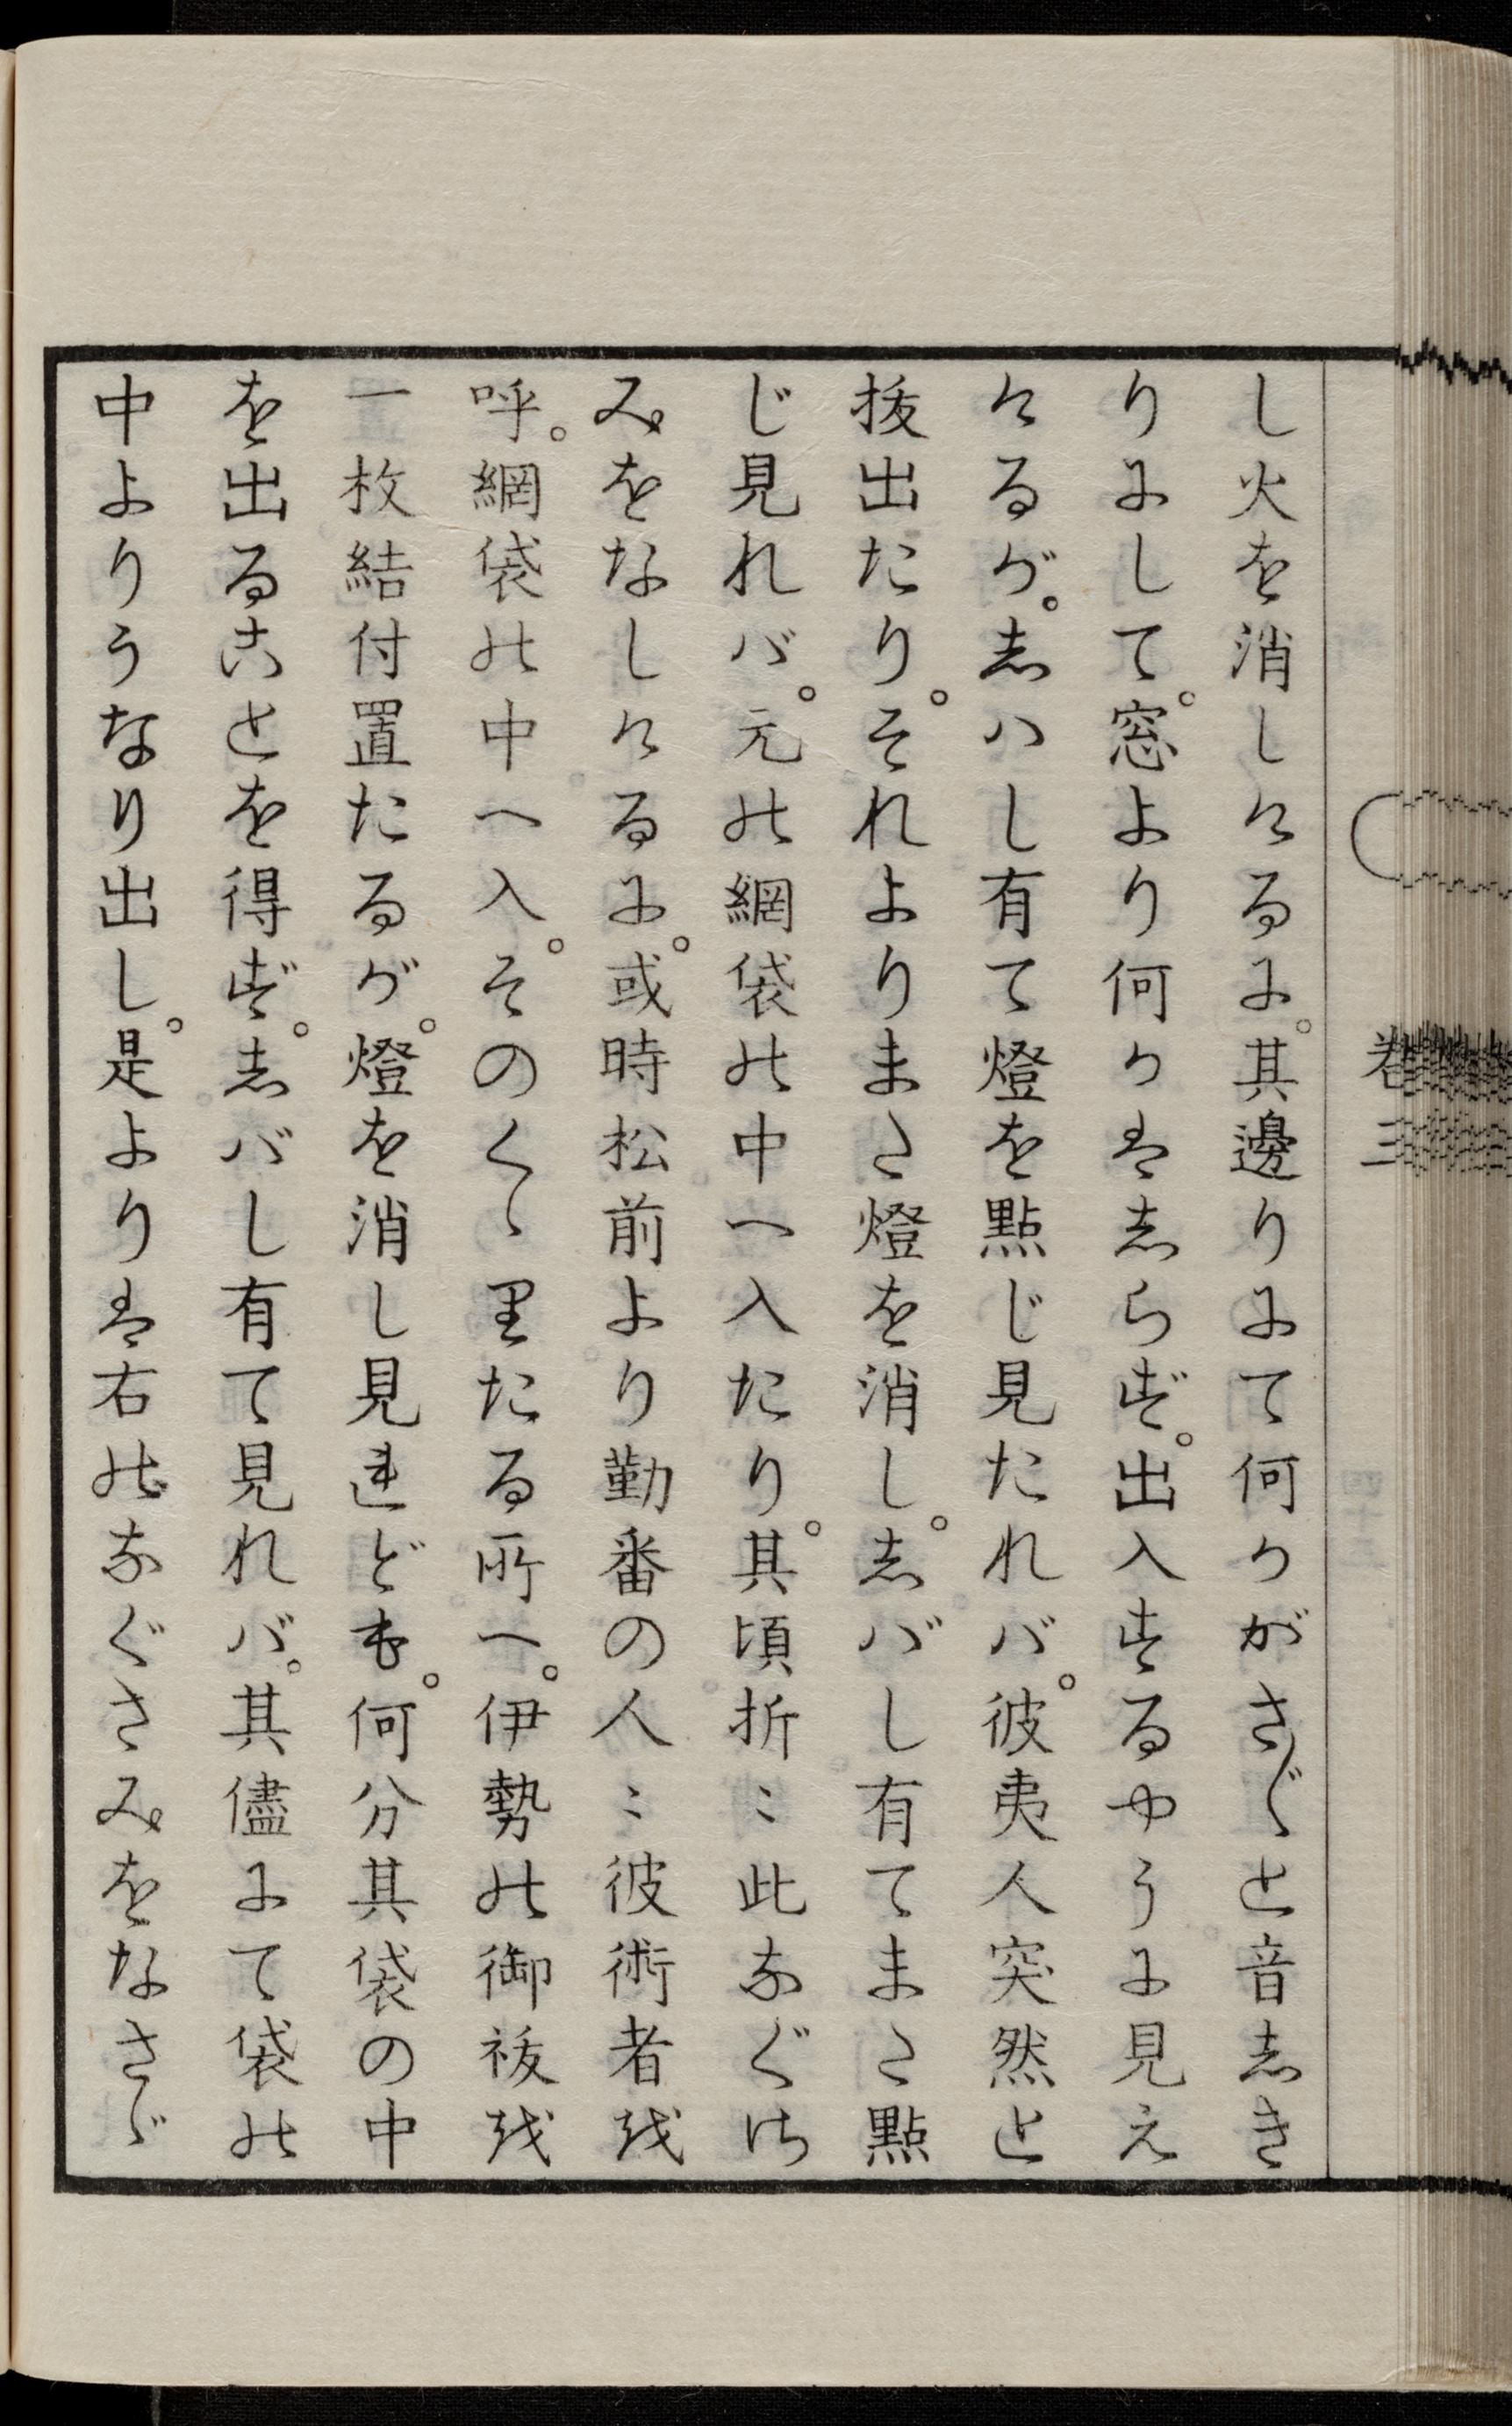 し火を消しけるに。其邊りにて何かがさ〴〵と音しき
りにして。窓より何かはしらず。出入するやうに見え
けるが。しハし有て燈を點じ見たれバ。彼夷人突然と
抜出たり。それよりまた燈を消し。しバし有てまた點
じ見れバ。元の網袋の中へ入たり。其頃折〻此なぐさ
みをなしけるに。或時松前より勤番の人〻彼術者を
呼。網袋の中へ入。そのくゝ里たる所へ。伊勢の御祓を
一枚結付置たるが。燈を消し見連ども。何分其袋の中
を出ることを得ず。しバし有て見れバ。其儘にて袋の
中よりうなり出し。是よりは右のなぐさみをなさゞ
巻三